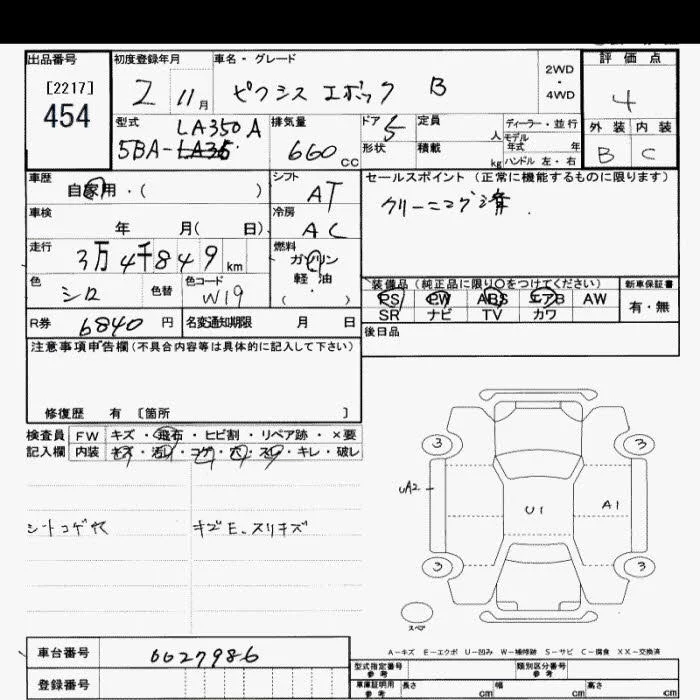 出品番号
[2217]
454
初度登録年月
2 11月
車名・グレード
ピクシス エポック B
2WD
・
4WD
評価点
4
外装 内装
B C
型式
LA350A
5BA-
排気量
660 cc
ドア 5
形状
定員 人
積載 kg
ディーラー・並行
モデル年式 年
ハンドル 左・右
車歴
自家用・( )
シフト
AT
セールスポイント(正常に機能するものに限ります)
クリーニング済.
車検
年 月( 日)
冷房
AC
走行
3万4千849km
燃料
ガソリン
軽・油
(・)
色
シロ
色替
色コード
W19
装備品(純正品に限り○をつけてください)
新車保証書
PS PW ABS エアB AW
SR ナビ TV カワ
有・無
R券 6840円
名変通知期限 月 日
後日品
注意事項申告欄(不具合内容等は具体的に記入して下さい)
修復歴 有 [箇所 ]
検査員
記入欄
FW キズ・飛石・ヒビ割・リペア跡・×要
内装 キズ・汚れ・コゲ・穴・スレ・キレ・破レ
シートコゲ穴
キズE、スリキズ
3 3
UA2
U1
A1
3 3
スペア
A-キズ E-エクボ U-凹み W-補修跡 S-サビ C-腐食 XX-交換済
車台番号
0027986
登録番号
型式指定番号
参考
類別区分番号
参考
車庫証明用
参考
長さ cm
幅 cm
高さ cm